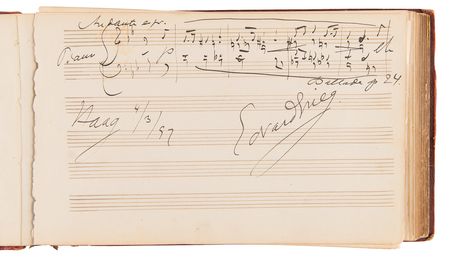 Andante espr.
Piano
Ballade op 24.
Haag 4/3/97
Edvard Grieg.